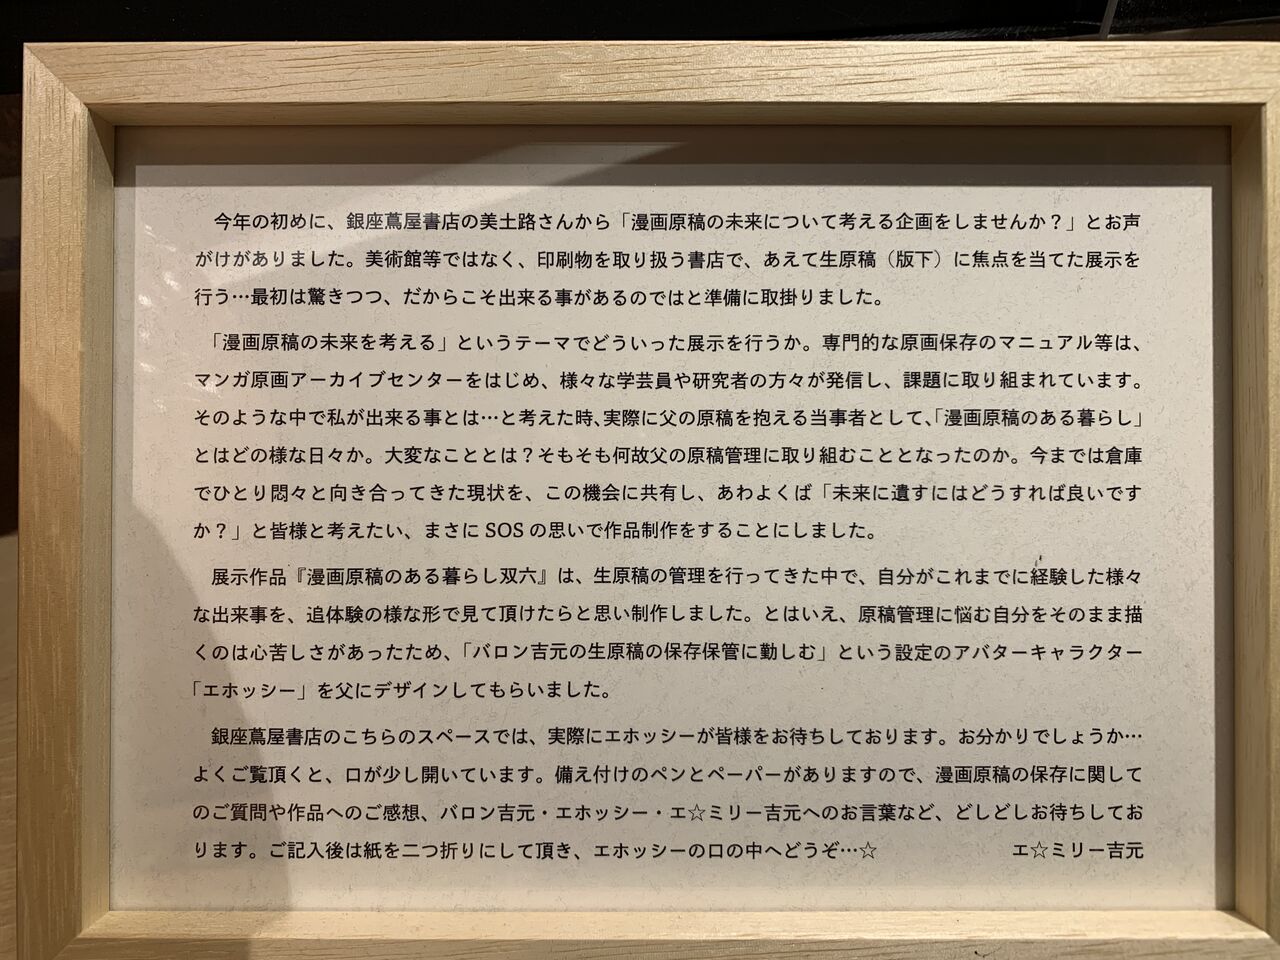 今年の初めに、銀座蔦屋書店の美土路さんから「漫画原稿の未来について考える企画をしませんか？」とお声
がけがありました。美術館等ではなく、印刷物を取り扱う書店で、あえて生原稿（版下）に焦点を当てた展示を
行う…最初は驚きつつ、だからこそ出来る事があるのではと準備に取掛りました。
「漫画原稿の未来を考える」というテーマでどういった展示を行うか。専門的な原画保存のマニュアル等は、
マンガ原画アーカイブセンターをはじめ、様々な学芸員や研究者の方々が発信し、課題に取り組まれています。
そのような中で私が出来る事とは…と考えた時、実際に父の原稿を抱える当事者として、「漫画原稿のある暮らし」
とはどの様な日々か。大変なこととは？そもそも何故父の原稿管理に取り組むこととなったのか。今までは倉庫
でひとり悶々と向き合ってきた現状を、この機会に共有し、あわよくば「未来に遺すにはどうすれば良いです
か？」と皆様と考えたい、まさに SOS の思いで作品制作をすることにしました。
展示作品『漫画原稿のある暮らし双六』は、生原稿の管理を行ってきた中で、自分がこれまでに経験した様々
な出来事を、追体験の様な形で見て頂けたらと思い制作しました。とはいえ、原稿管理に悩む自分をそのまま描
くのは心苦しさがあったため、「バロン吉元の生原稿の保存保管に勤しむ」という設定のアバターキャラクター
「エホッシー」を父にデザインしてもらいました。
銀座蔦屋書店のこちらのスペースでは、実際にエホッシーが皆様をお待ちしております。お分かりでしょうか…
よくご覧頂くと、口が少し開いています。備え付けのペンとペーパーがありますので、漫画原稿の保存に関して
のご質問や作品へのご感想、バロン吉元・エホッシー・エ☆ミリー吉元へのお言葉など、どしどしお待ちしてお
ります。ご記入後は紙を二つ折りにして頂き、エホッシーの口の中へどうぞ…☆
エ☆ミリー吉元